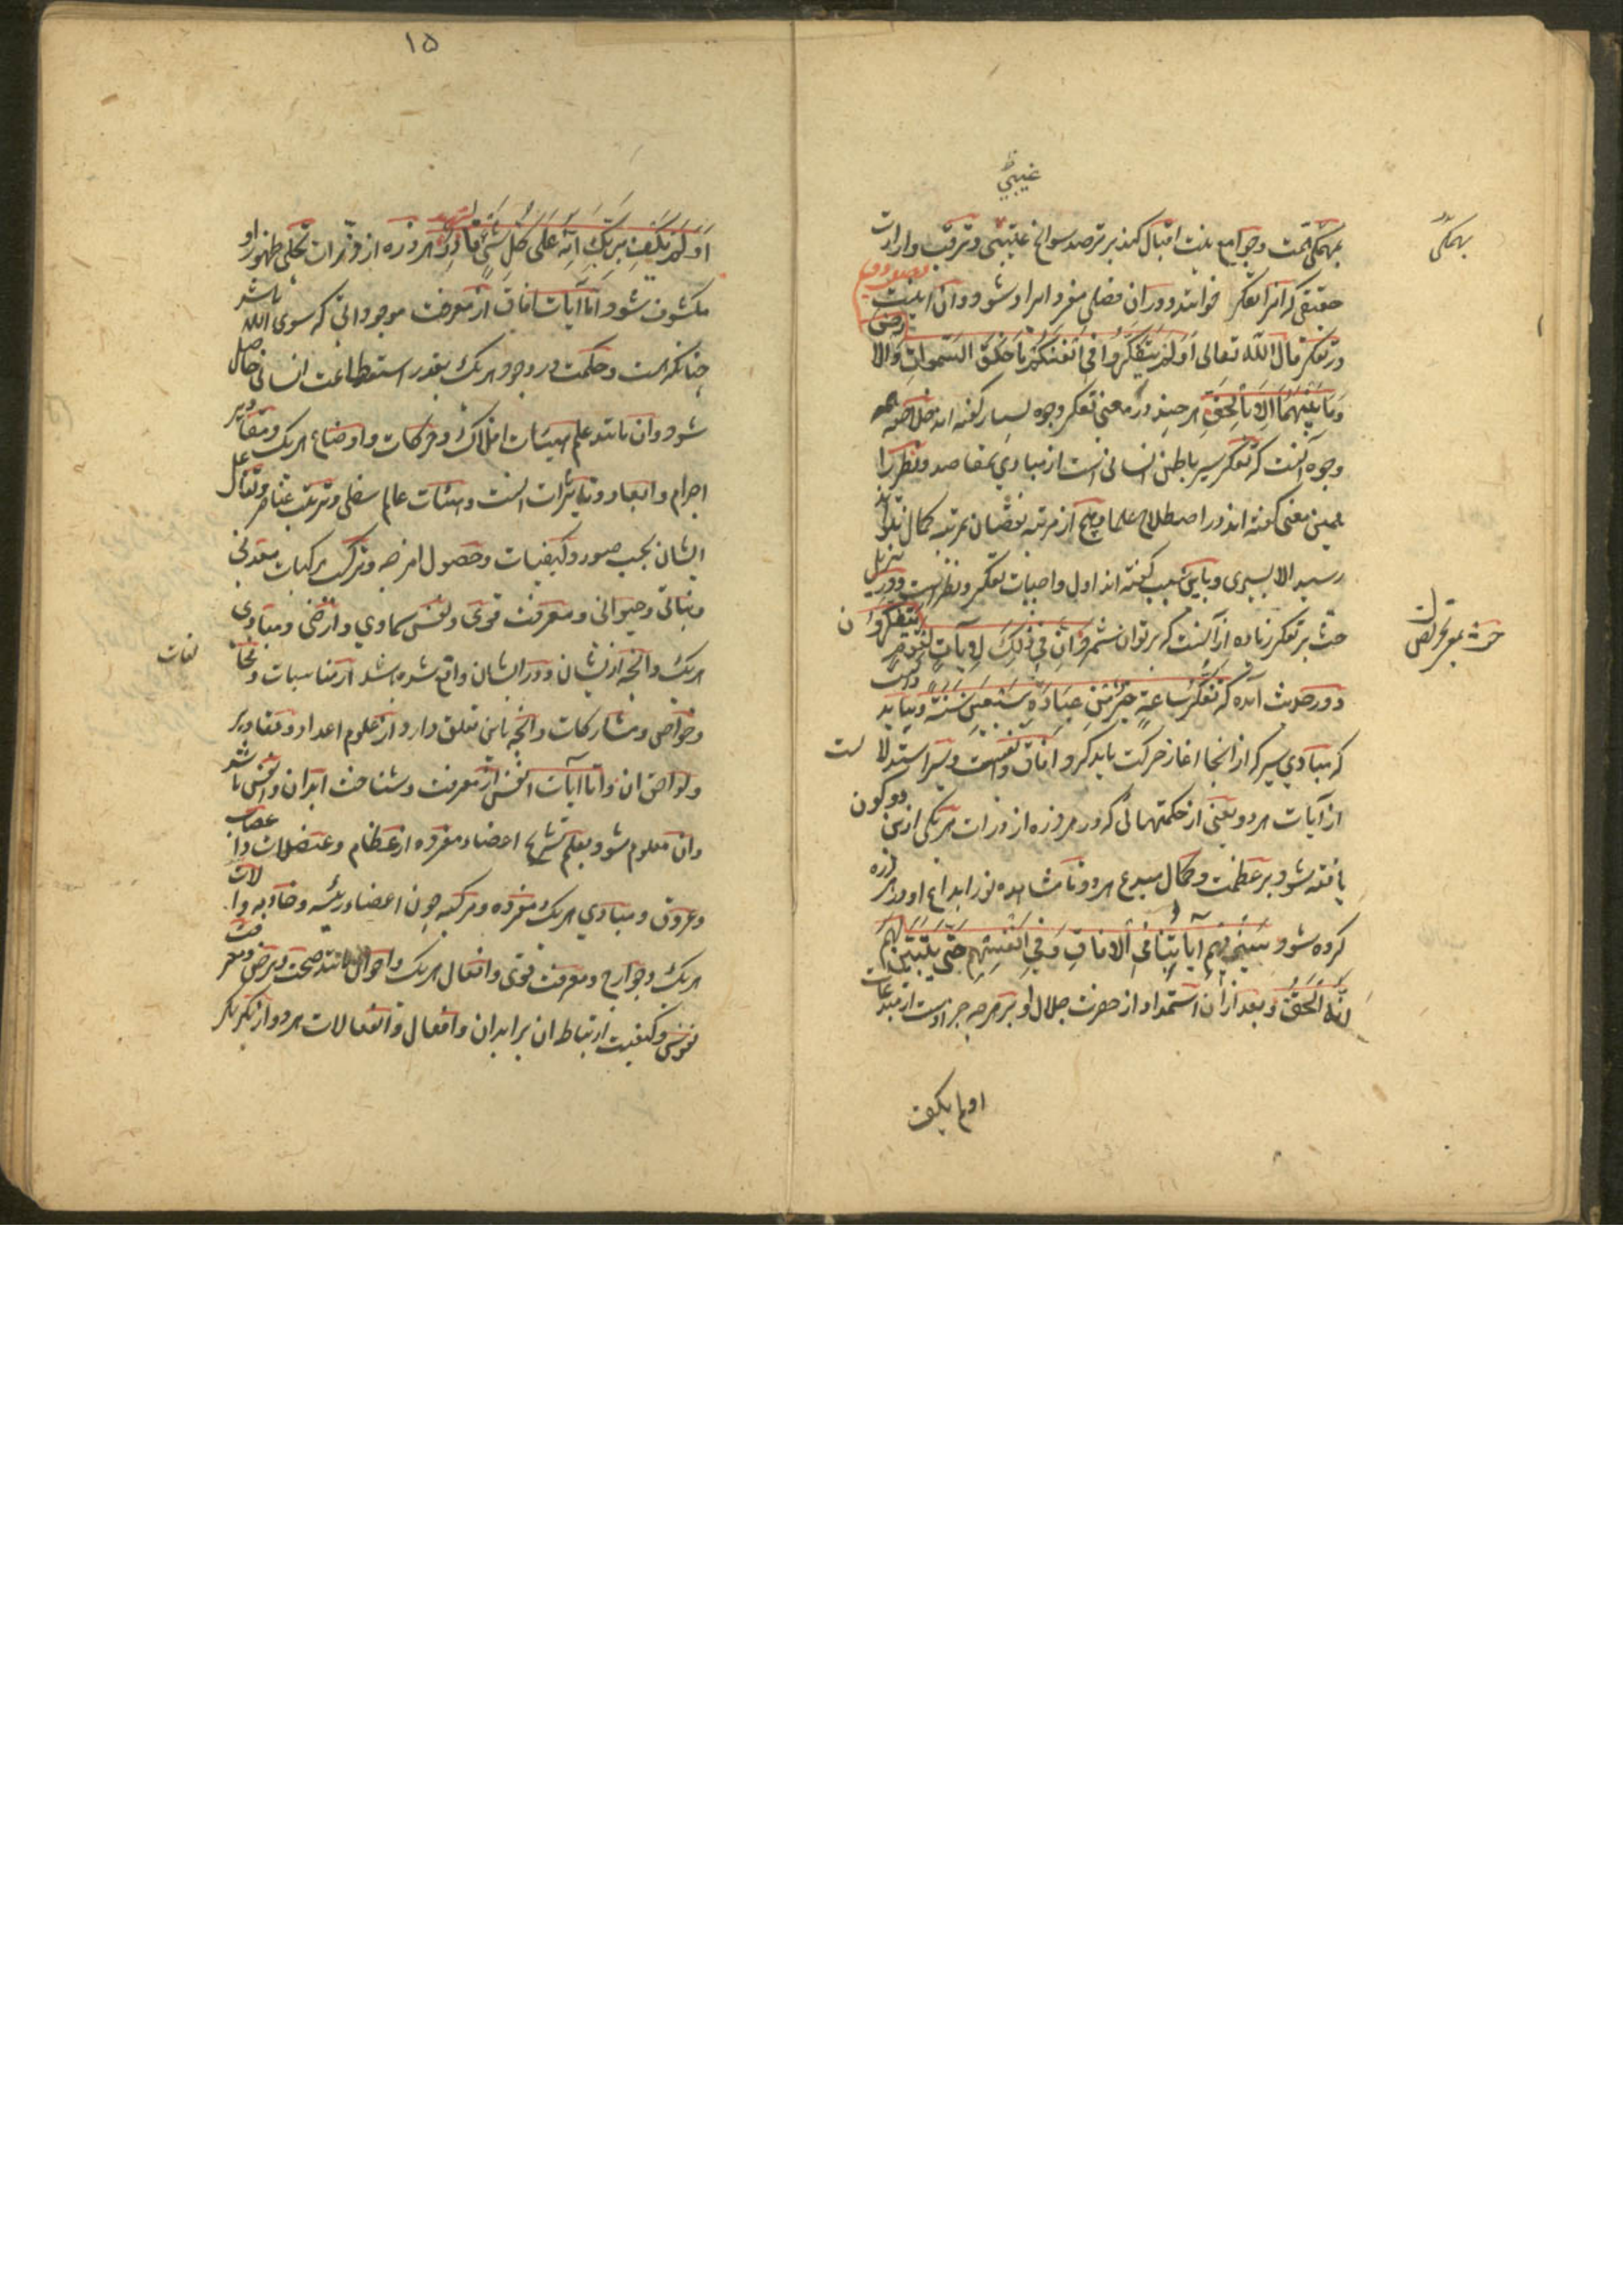 غیبی
بهمگی همت و جوامع نیت اقبال کند بر ترصد سوانح غیبی و ترقب واردات
بهمگی
حقیقی که آنرا تفکر خوانند و در آن فصلی مفرد ایراد شود و آن اینست
در تفکر قال الله تعالی اَوَلَمْ یَتَفَکَّرُوا فِی اَنْفُسِهِمْ مَا خَلَقَ السَّمواتِ وَالا
رض
وَمَا بَیْنَهُمَا اِلّا بِالْحَقِّ هر چند در معنی تفکر وجوه بسیار گفته اند خلاصه همه
وجوه آنست که تفکر سیر باطن انسانی است از مبادی بمقاصد و نظر را
همین معنی گفته اند در اصطلاح علما و هیچ از مرتبه نقصان بمرتبه کمال نتواند
رسید الا بسیری و باین سبب گفته اند اول واجبات تفکر و نظر است و در تنزیل
حث بر تفکر زیاده از آنست که بر توان شمرد اِنَّ فِی ذلِکَ لَآیاتٍ لِقَوْمٍ یَتَفَکَّرُون
و در حدیث آمده که تَفَکُّرُ سَاعَةٍ خَیْرٌ مِنْ عِبَادَةِ سَبْعِینَ سَنَةً و بباید دانست
که مبادی سیر که از آنجا آغاز حرکت باید کرد آفاق و انفس است و سیر استدلا لست
از آیات هر دو یعنی از حکمتهائی که در هر ذره از ذرات هر یکی ازین دو کون
یافته شود بر عظمت و کمال مبدع هر دو تا مشاهده نور ابداع او در هر ذره
کرده شود سَنُرِیهِمْ آیَاتِنَا فِی الْآفَاقِ وَفِی اَنْفُسِهِمْ حَتّی یَتَبَیَّنَ لَهُمْ
اَنَّهُ الْحَقُّ و بعد از آن استشهاد از حضرت جلال او بر هرچه جز اوست از مبدعات
اولم یکف
۱۵
اَوَلَمْ یَکْفِ بِرَبِّکَ اَنَّهُ عَلی کُلِّ شَیْءٍ شهید هر ذره از ذرات تجلی ظهور او
مکشوف شود اما آیات آفاق از معرفت موجوداتی که سوی الله باشد
چنانکه هست و حکمت در وجود هر یک بقدر استطاعت انسانی حاصل
شود و آن مانند علم هیئات افلاک و حرکات و اوضاع هر یک و مقادیر
اجرام و ابعاد و تاثیرات آنست و هیئات عالم سفلی و ترتیب عناصر و تفاعل
ایشان بحسب صور و کیفیات و حصول امزجه و ترکیب مرکبات معدنی
و نباتی و حیوانی و معرفت قوی و نفس سماوی و ارضی و مبادی
هر یک و آنچه از ایشان و در ایشان واقع شده باشد از مناسبات و مخا
لفات
و خواص و مشارکات و آنچه باین تعلق دارد از علوم اعداد و مقادیر
و لواحق آن و اما آیات انفس از معرفت و شناخت ابدان و انفس باشد
و آن معلوم شود بعلم تشریح اعضاء مفرده از عظام و عضلات و اعصاب
و عروق و مبادی هر یک مفرده و مرکبه چون اعضاء رئیسه و خادمه و آلات
هر یک و جوارح و معرفت قوی و افعال هر یک و احوال مانند صحت و مرض و معرفت
نفوس و کیفیت ارتباط آن بر ابدان و افعال و انفعالات هر دو از یکدیگر